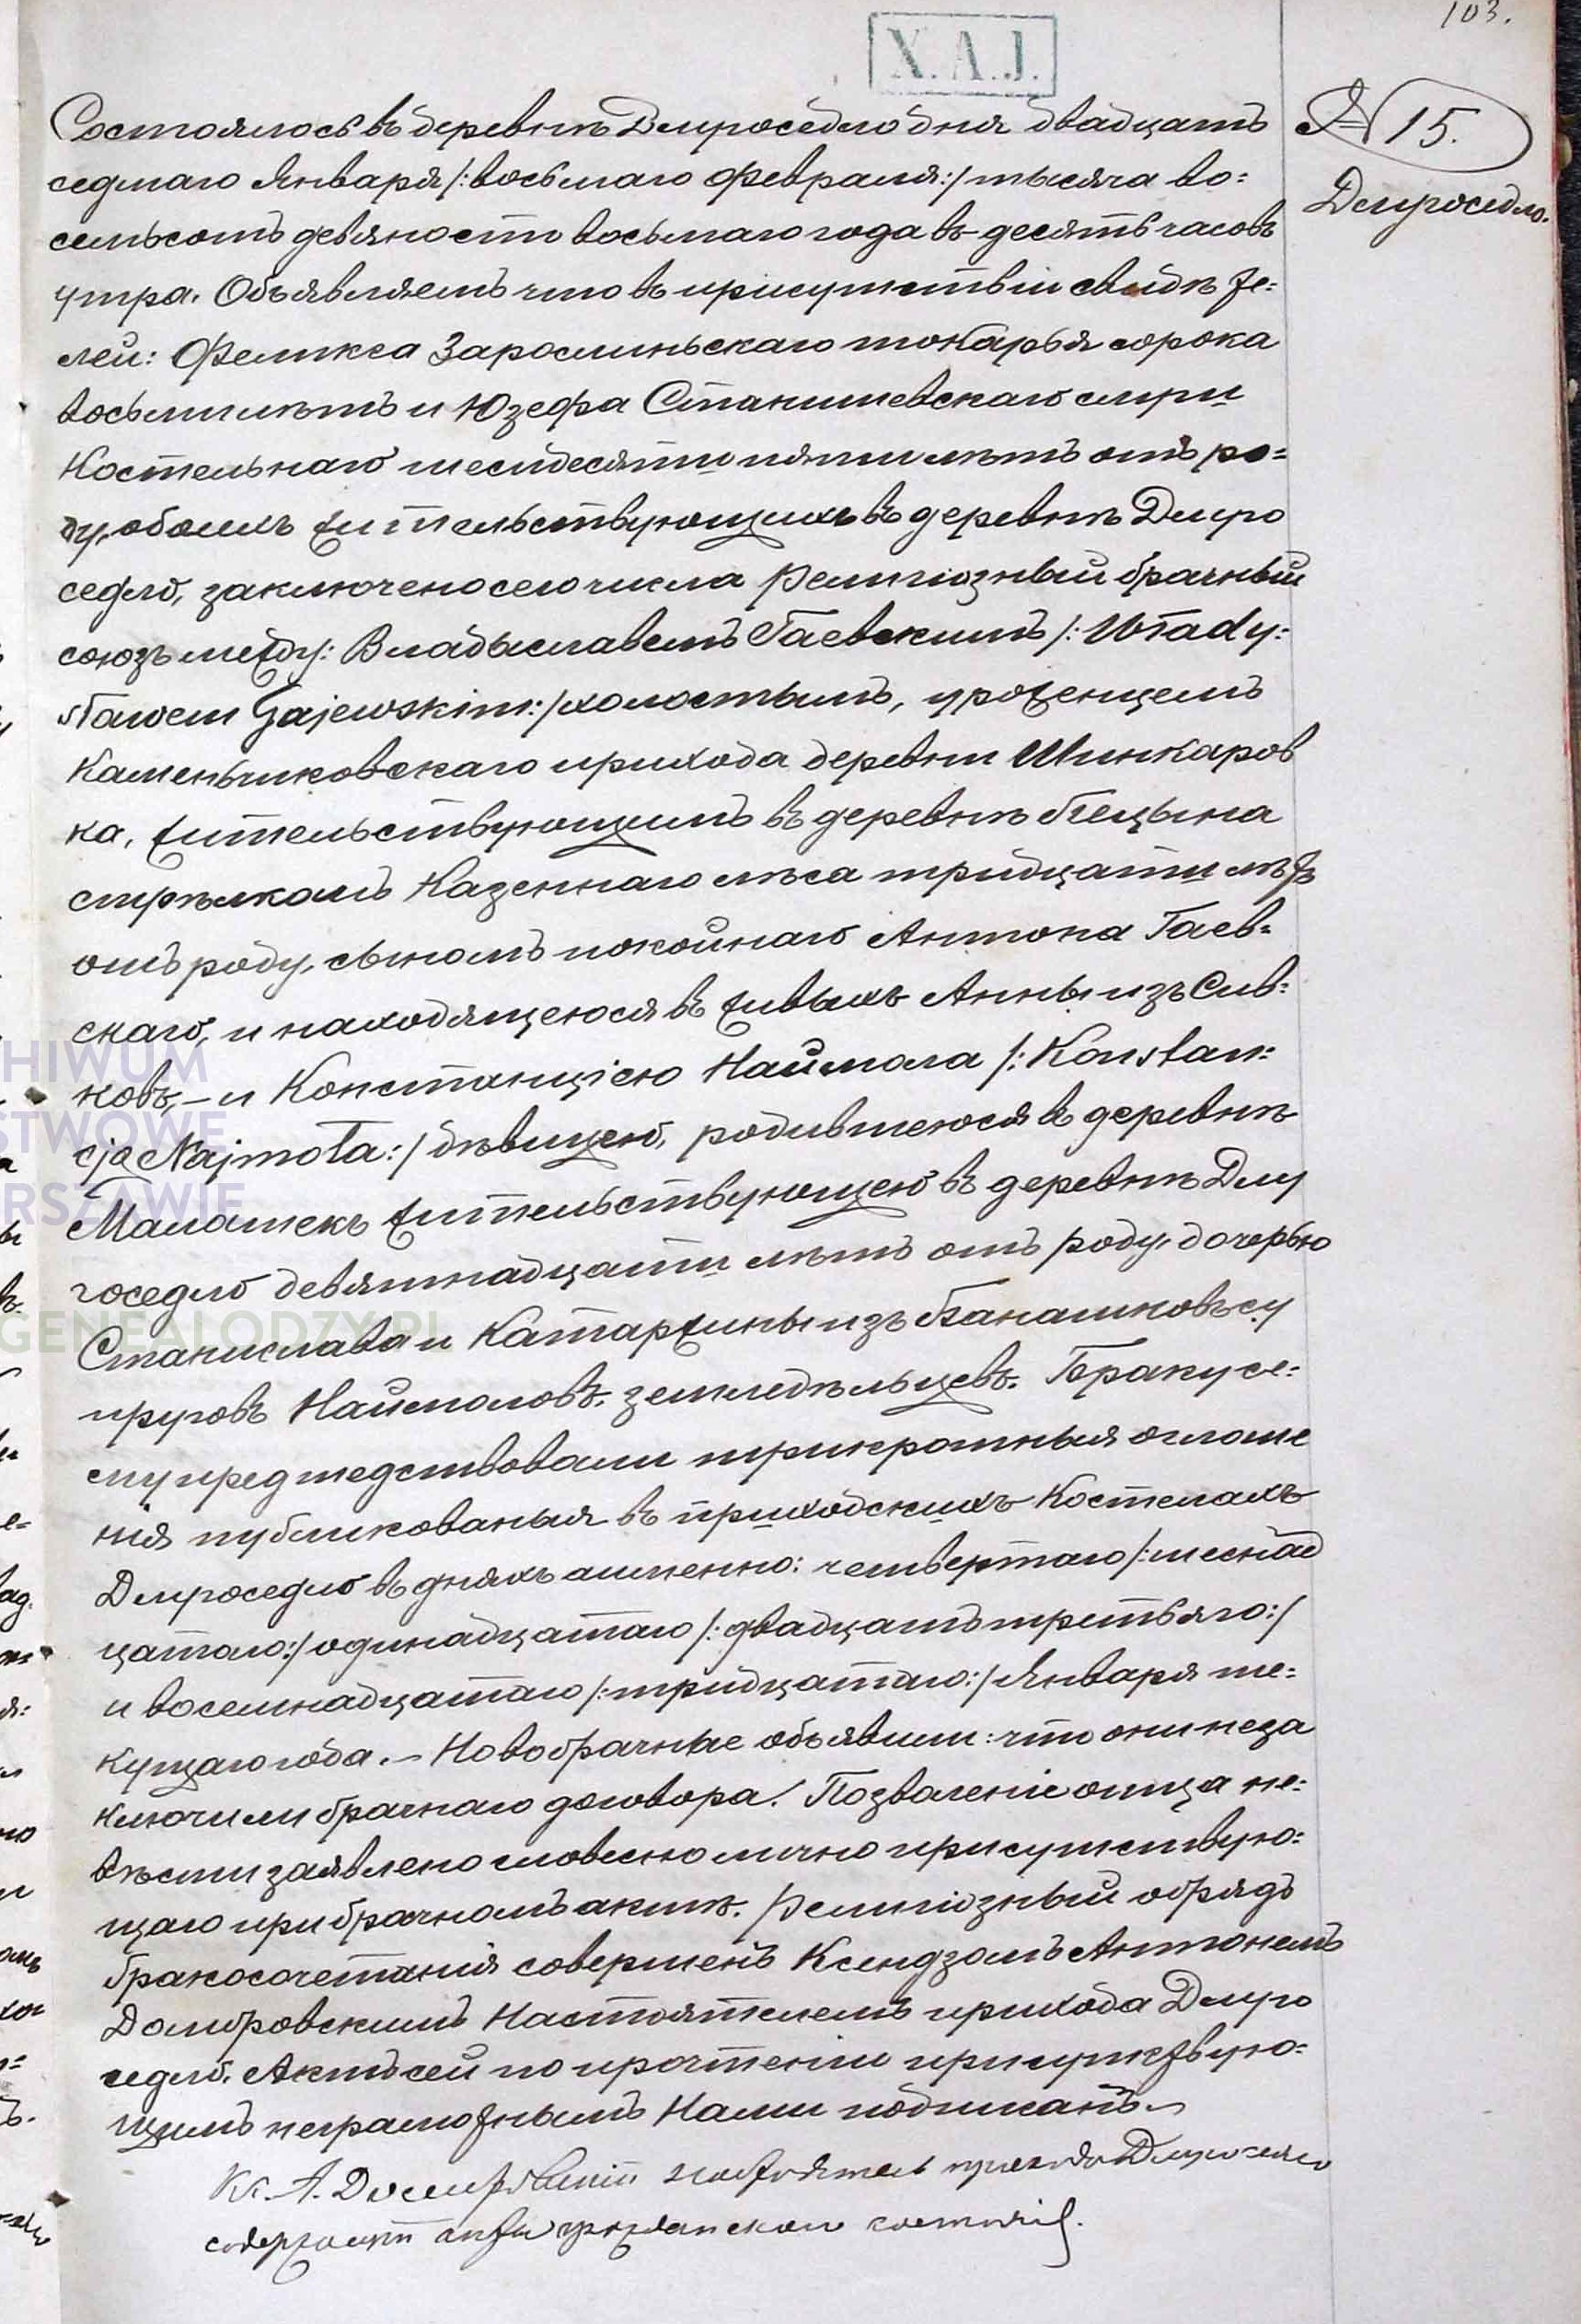 103.
X.A.J.
№ 15.
Длугоседло.
Состоялось въ деревнѣ Длугоседло дня двадцать
седмаго Января /:восьмаго Февраля:/ тысяча во=
семьсотъ девяносто восьмаго года въ десять часовъ
утра. Объявляемъ что въ присутствіи свидѣте=
лей: Феликса Зарослиньскаго токарья сорока
восьми лѣтъ и Юзефа Станишевскаго слуги
Костельнаго шестдесяти пяти лѣтъ отъ ро=
ду, обоихъ жительствующихъ въ деревнѣ Длуго
седло, заключено сего числа Религіозный брачный
союзъ между: Владыславемъ Гаевскимъ /: Włady:
sławem Gajewskim:/ холостымъ, уроженцемъ
Каменьчиковскаго прихода деревни Шинкаров
ка, жительствующимъ въ деревнѣ Пецына
стрѣлкомъ Казеннаго лѣса тридцати лѣтъ
отъ роду, сыномъ покойнаго Антона Гаев=
скаго, и находящеюся въ живыхъ Анны изъ Сив=
ковъ, – и Констанціею Наймола /: Konstan:
cją Najmoła:/ дѣвицею, родившеюся въ деревнѣ
Малашекъ жительствующею въ деревнѣ Длу
госедло девятнадцати лѣтъ отъ роду, дочерью
Станислава и Катаржины изъ Банашковъ су
пруговъ Наймоловъ, земледѣльцевъ. Браку се=
му предшедствовали трикратныя оглаше
нія публикованыя въ приходскихъ Костелахъ
Длугоседло въ дняхъ аименно: четвертаго /:шеснад
цатаго:/ одинадцатаго /:двадцать третьяго:/
и восемнадцатаго /:тридцатаго:/ Января те=
кущаго года. – Новобрачные объявили: что они неза
ключили брачнаго договора. Позваленіе отца не=
вѣсти заявлено словесно лично присутствую=
щаго при брачномъ актѣ. Религіозный обрядъ
бракосочетанія совершенъ Ксендзомъ Антонемъ
Домбровскимъ Настоятелемъ прихода Длуго
седло. Актъ сей по прочтеніи присутствую=
щимъ неграмотнымъ Нами подписанъ. –
Кс. А. Домбровскій настоятель прихода Длугоседло
содержащій акты гражданскаго состоянія.